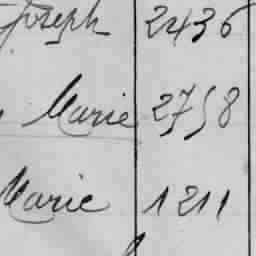 Joseph 2436
Marie 2758
Marie 1211